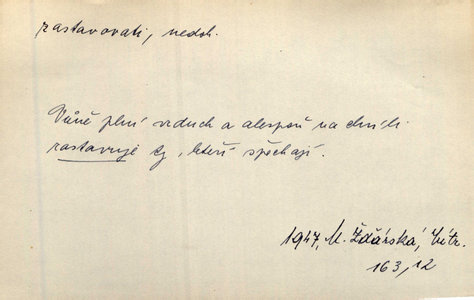 zastavovati, nedok.
Vůně plní vzduch a alespoň na chvíli
zastavuje ty, kteří spěchají.
1947, M. Žďárská, Větr.
163, 12